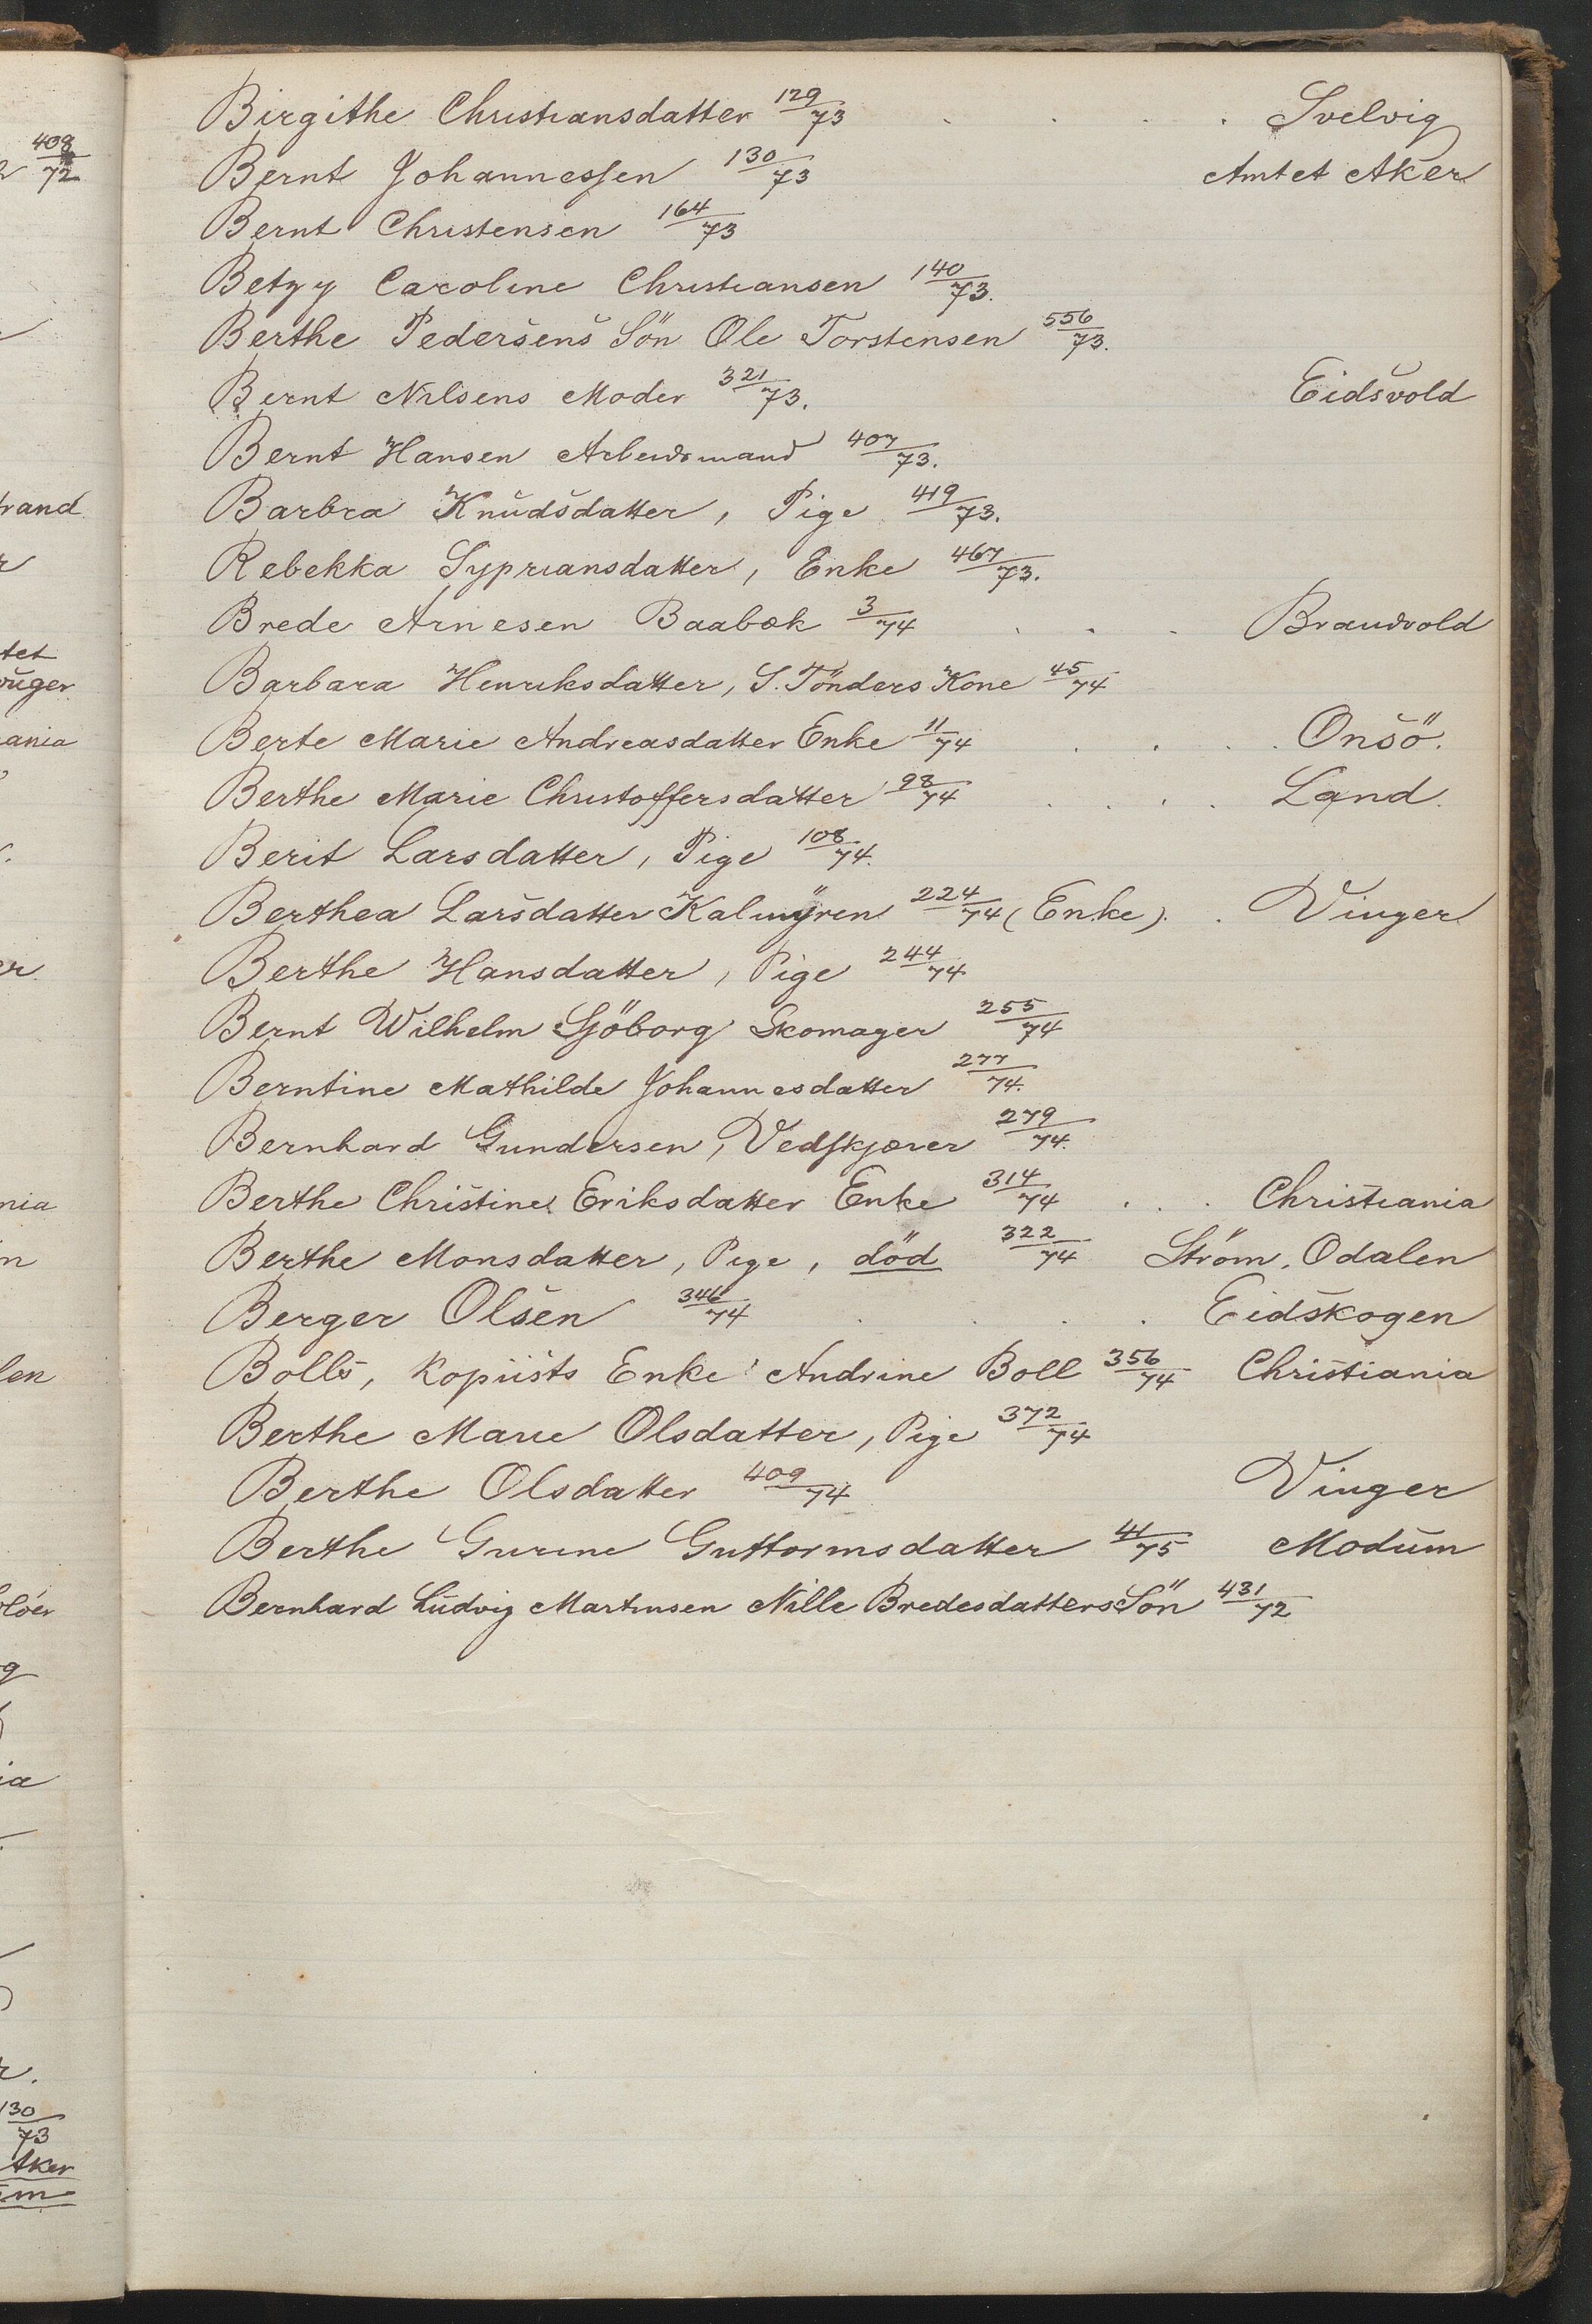 Birgithe Christiansdatter 129/73 . . . . Svelvig
Bernt Johannessen 130/73 Amtet Aker
Bernt Christensen 164/73
Betzy Caroline Christiansen 140/73.
Berthe Pedersens Sön Ole Torstensen 556/73.
Bernt Nilsens Moder 321/73. Eidsvold
Bernt Hansen Arbeidsmand 407/73.
Barbra Knudsdatter, Pige 419/73.
Rebekka Sypriansdatter, Enke 467/73.
Brede Arnesen Baabøk 3/74 . . . Brandvold
Barbara Henriksdatter, S. Tönders Kone 45/74
Berte Marie Andreasdatter Enke 11/74 . . . . Onsö.
Berthe Marie Christoffersdatter 98/74 . . . . Land.
Berit Larsdatter, Pige 108/74.
Berthea Larsdatter Kalmyren 224/74 (Enke). . Vinger
Berthe Hansdatter, Pige 244/74
Bernt Wilhelm Sjöborg Skomager 255/74
Berntine Mathilde Johannesdatter 277/74.
Bernhard Gundersen, Vedskjærer 279/74.
Berthe Christine Eriksdatter Enke 314/74 . . . Christiania
Berthe Monsdatter, Pige, död 322/74 Ström, Odalen
Berger Olsen 346/74 . . . . Eidskogen
Bolls, Kopiists Enke: Andrine Boll 356/74 Christiania
Berthe Marie Olsdatter, Pige 372/74
Berthe Olsdatter 409/74 Vinger
Berthe Gurine Guttormsdatter 41/75 Modum
Bernhard Ludvig Martinsen Nille Bredesdatters Sön 431/72
408/72
rand
tet
ania
er
nia
len
g
ia
130/73
Aker